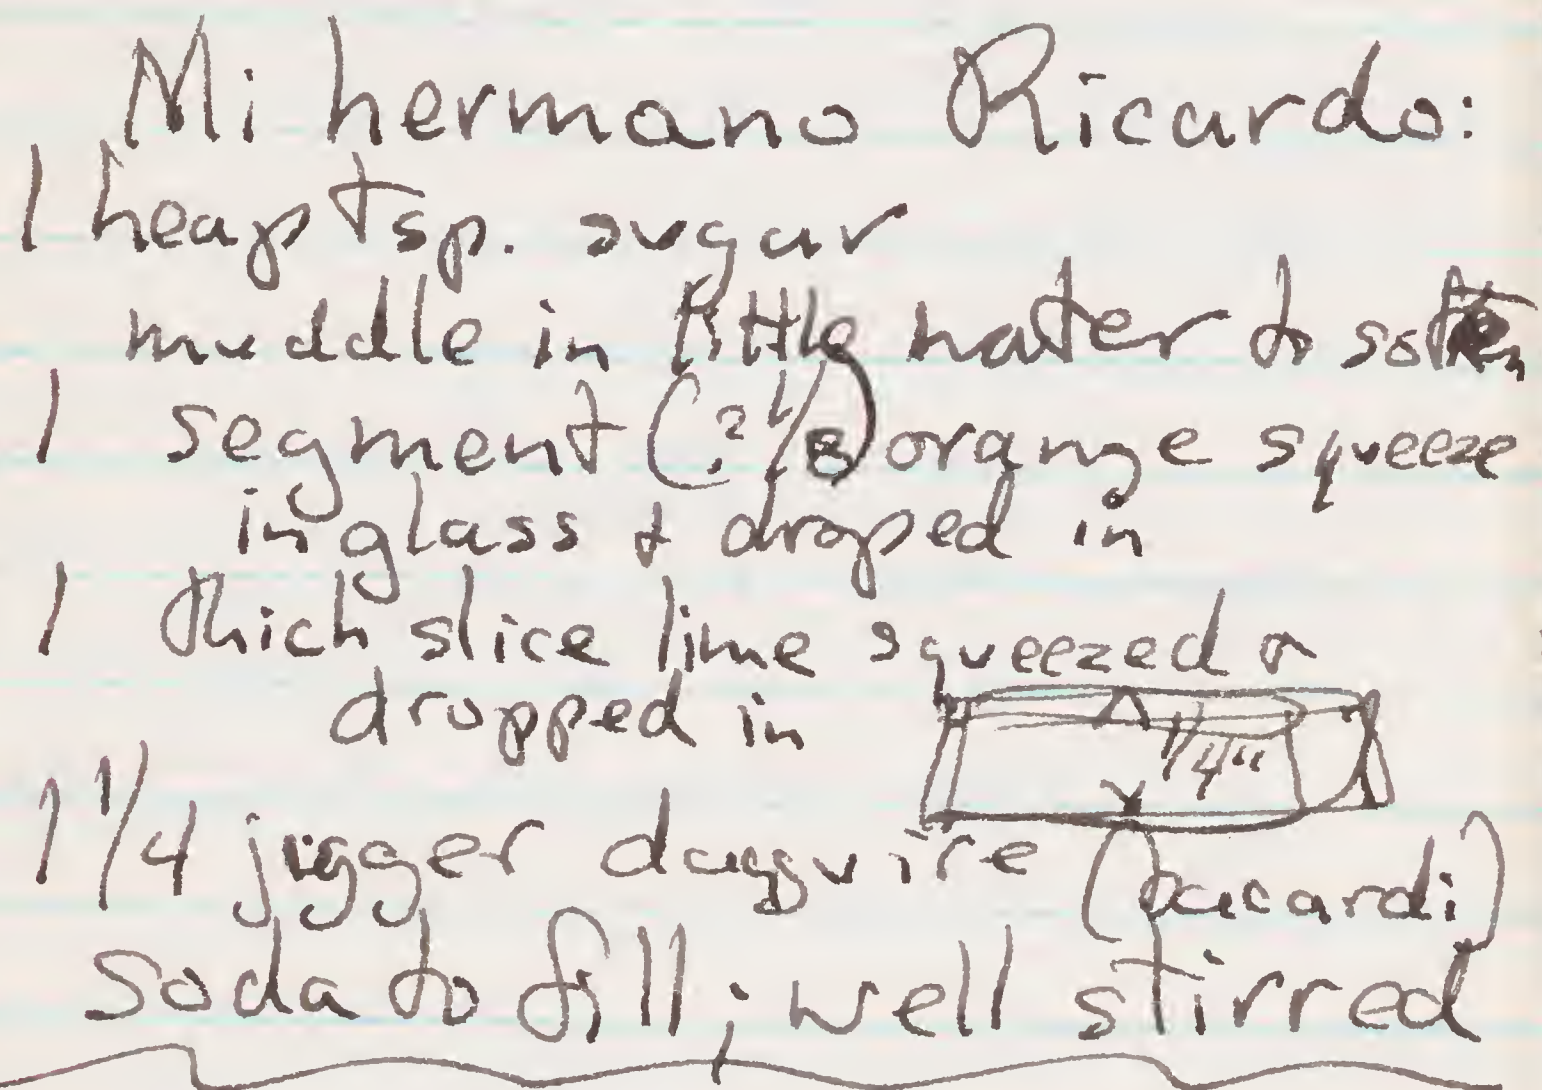 Mi hermano Ricardo:
1 heap tsp. sugar
muddle in little water to soften
1 segment (? 1/8) orange squeeze
in glass & droped in
1 thick slice lime squeezed &
dropped in
1/4"
1 1/4 jigger (bacardi)
soda to fill; well stirred